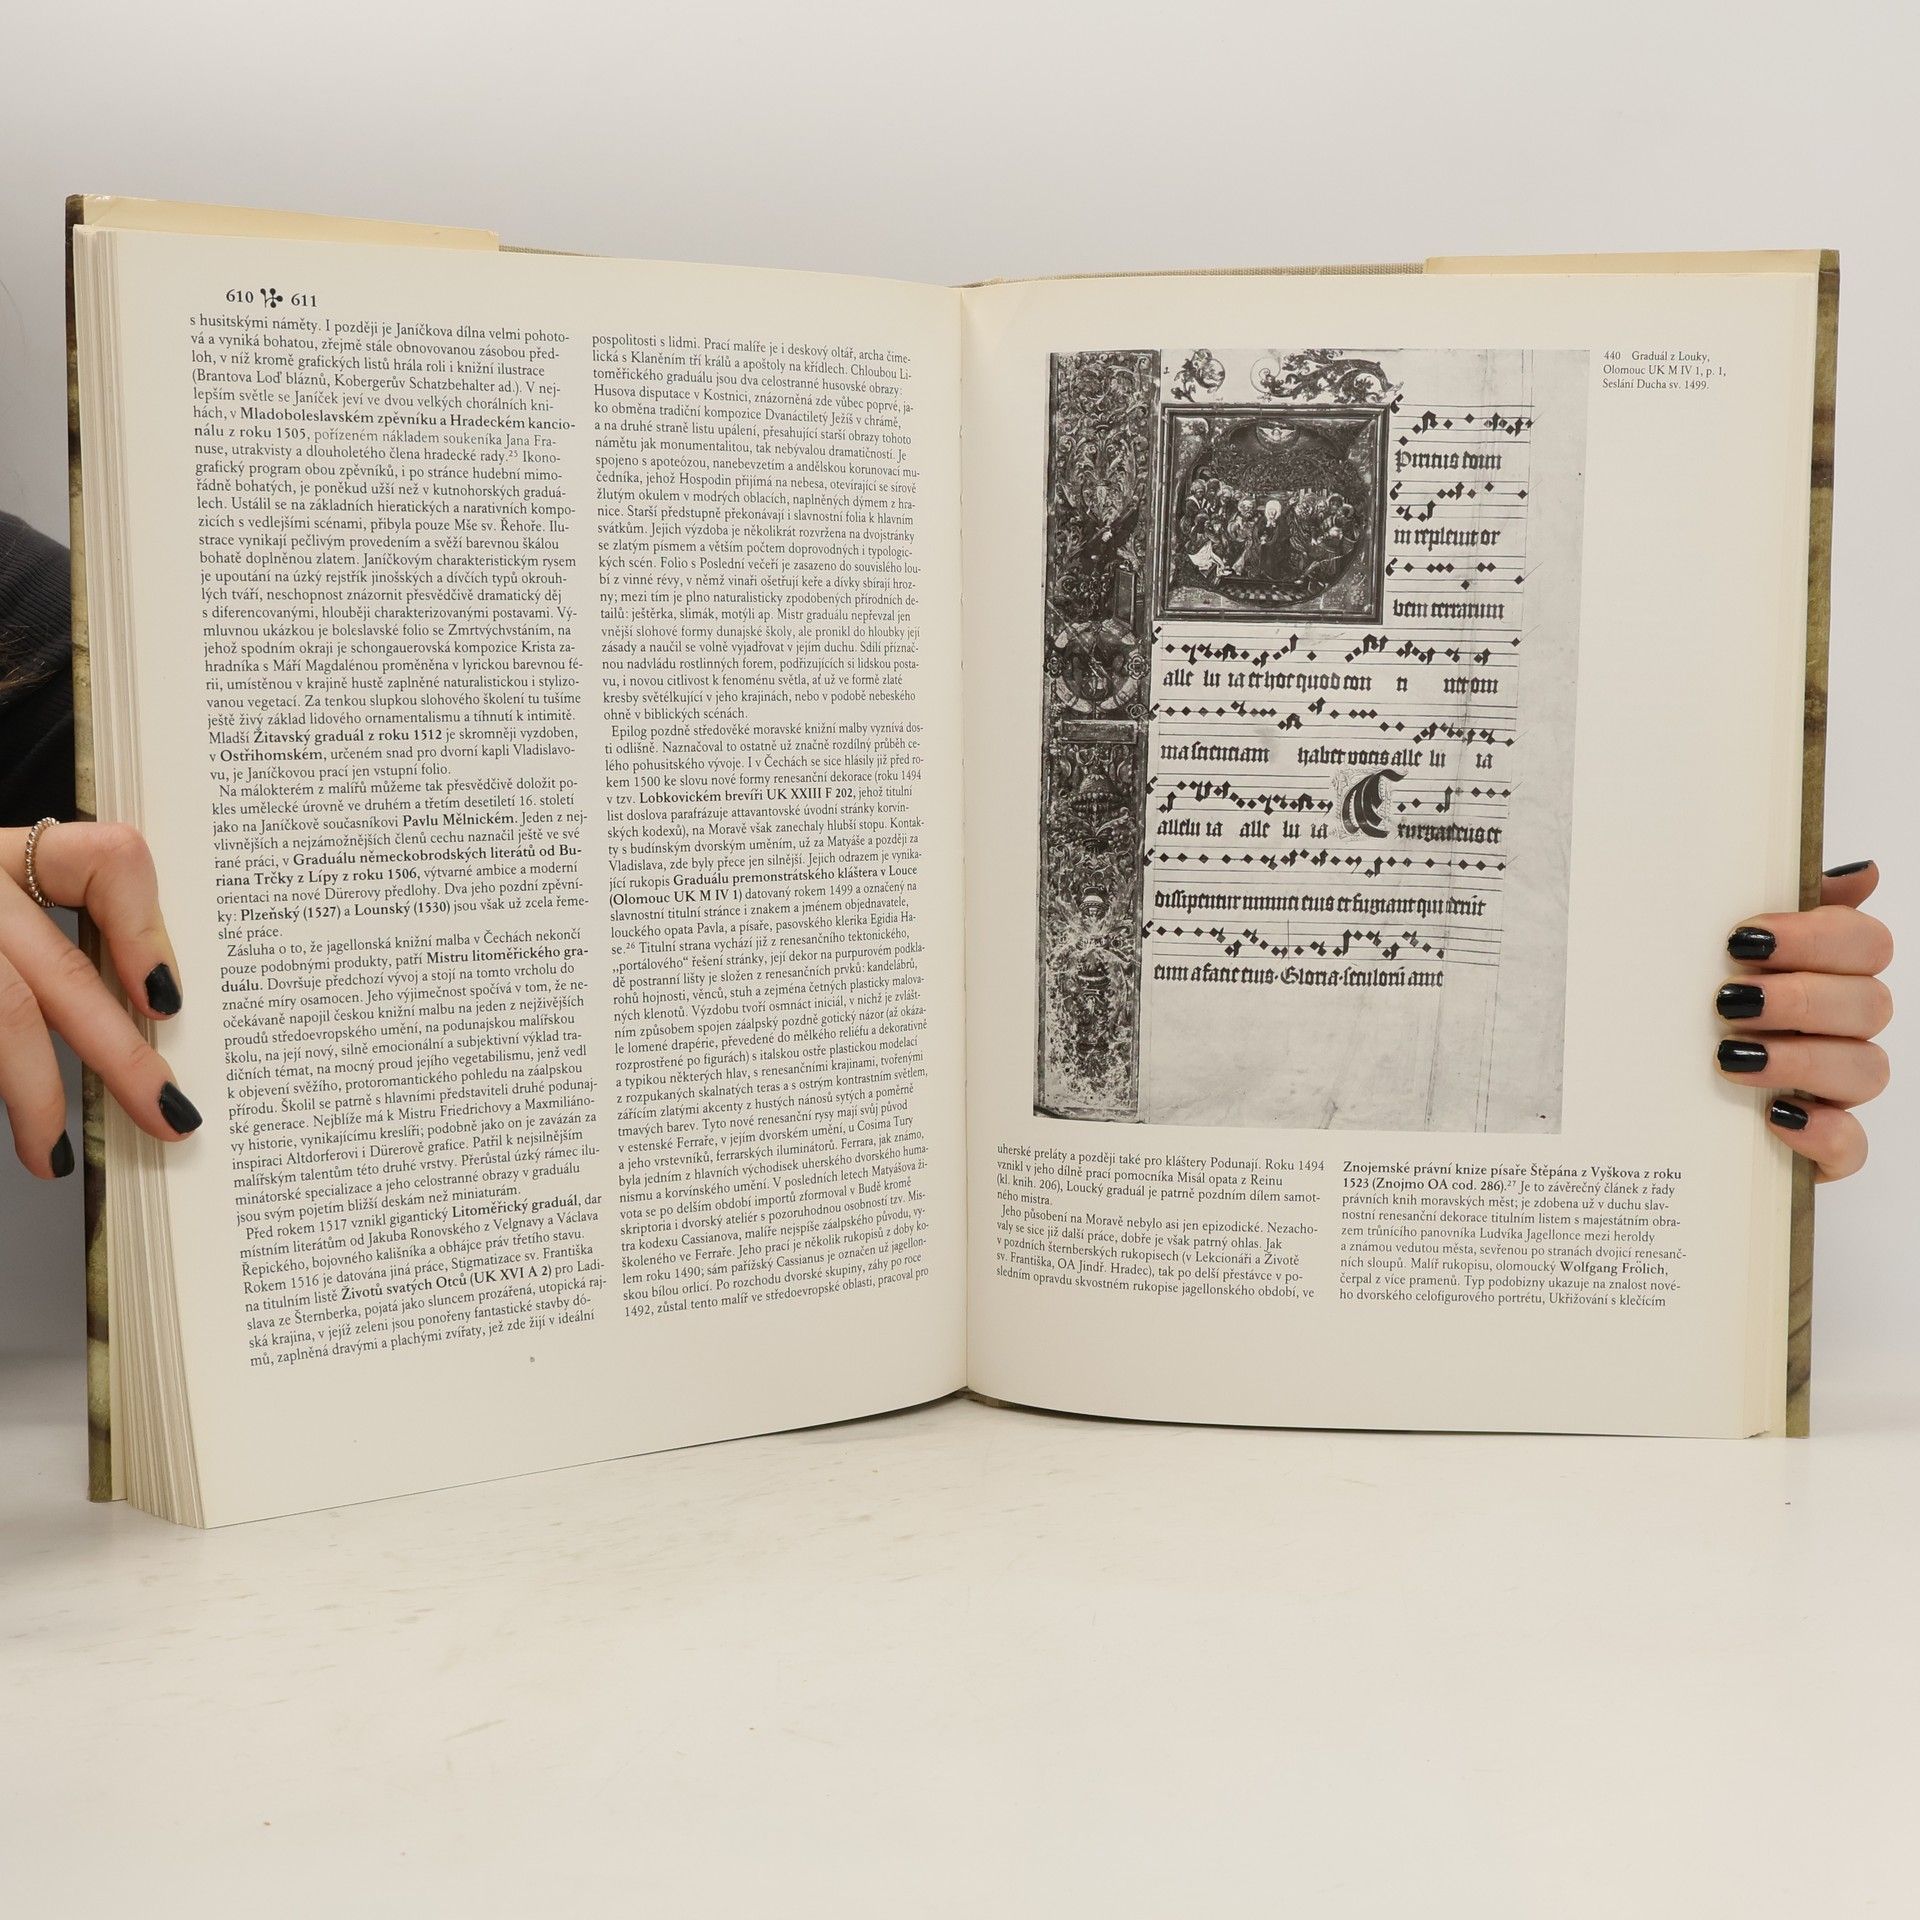 610 611
s husitskými náměty. I později je Janíčkova dílna velmi pohoto-
vá a vyniká bohatou, zřejmě stále obnovovanou zásobou před-
loh, v níž kromě grafických listů hrála roli i knižní ilustrace
(Brantova Loď bláznů, Kobergerův Schatzbehalter ad.). V nej-
lepším světle se Janíček jeví ve dvou velkých chorálních kni-
hách, v Mladoboleslavském zpěvníku a Hradeckém kancio-
nálu z roku 1505, pořízeném nákladem soukeníka Jana Fra-
nuse, utrakvisty a dlouholetého člena hradecké rady.²⁵ Ikono-
grafický program obou zpěvníků, i po stránce hudební mimo-
řádně bohatých, je poněkud užší než v kutnohorských graduá-
lech. Ustálil se na základních hieratických a narativních kompo-
zicích s vedlejšími scénami, přibyla pouze Mše sv. Řehoře. Ilu-
strace vynikají pečlivým provedením a svěží barevnou škálou
bohatě doplněnou zlatem. Janíčkovým charakteristickým rysem
je upoutání na úzký rejstřík jinošských a dívčích typů okrouh-
lých tváří, neschopnost znázornit přesvědčivě dramatický děj
s diferencovanými, hlouběji charakterizovanými postavami. Vý-
mluvnou ukázkou je boleslavské folio se Zmrtvýchvstáním, na
jehož spodním okraji je schongauerovská kompozice Krista za-
hradníka s Máří Magdalénou proměněna v lyrickou barevnou fé-
rii, umístěnou v krajině hustě zaplněné naturalistickou i stylizo-
vanou vegetací. Za tenkou slupkou slohového školení tu tušíme
ještě živý základ lidového ornamentalismu a tíhnutí k intimitě.
Mladší Žitavský graduál z roku 1512 je skromněji vyzdoben,
v Ostřihomském, určeném snad pro dvorní kapli Vladislavo-
vu, je Janíčkovou prací jen vstupní folio.
Na málokterém z malířů můžeme tak přesvědčivě doložit po-
kles umělecké úrovně ve druhém a třetím desetiletí 16. století
jako na Janíčkově současníkovi Pavlu Mělnickém. Jeden z nej-
vlivnějších a nejzámožnějších členů cechu naznačil ještě ve své
rané práci, v Graduálu německobrodských literátů od Bu-
riana Trčky z Lípy z roku 1506, výtvarné ambice a moderní
orientaci na nové Dürerovy předlohy. Dva jeho pozdní zpěvní-
ky: Plzeňský (1527) a Lounský (1530) jsou však už zcela řeme-
slné práce.
Zásluha o to, že jagellonská knižní malba v Čechách nekončí
pouze podobnými produkty, patří Mistru litoměřického gra-
duálu. Dovršuje předchozí vývoj a stojí na tomto vrcholu do
značné míry osamocen. Jeho výjimečnost spočívá v tom, že ne-
očekávaně napojil českou knižní malbu na jeden z nejživějších
proudů středoevropského umění, na podunajskou malířskou
školu, na její nový, silně emocionální a subjektivní výklad tra-
dičních témat, na mocný proud jejího vegetabilismu, jenž vedl
k objevení svěžího, protoromantického pohledu na záalpskou
přírodu. Školil se patrně s hlavními představiteli druhé podunaj-
ské generace. Nejblíže má k Mistru Friedrichovy a Maxmiliáno-
vy historie, vynikajícímu kreslíři; podobně jako on je zavázán za
inspiraci Altdorferovi i Dürerově grafice. Patřil k nejsilnějším
malířským talentům této druhé vrstvy. Přerůstal úzký rámec ilu-
minátorské specializace a jeho celostranné obrazy v graduálu
jsou svým pojetím bližší deskám než miniaturám.
Před rokem 1517 vznikl gigantický Litoměřický graduál, dar
místním literátům od Jakuba Ronovského z Velgnavy a Václava
Řepického, bojovného kališníka a obhájce práv třetího stavu.
Rokem 1516 je datována jiná práce, Stigmatizace sv. Františka
na titulním listě Životů svatých Otců (UK XVI A 2) pro Ladi-
slava ze Šternberka, pojatá jako sluncem prozářená, utopická raj-
ská krajina, v jejíž zeleni jsou ponořeny fantastické stavby dó-
mů, zaplněná dravými a plachými zvířaty, jež zde žijí v ideální
pospolitosti s lidmi. Prací malíře je i deskový oltář, archa čime-
lická s Klaněním tří králů a apoštoly na křídlech. Chloubou Li-
toměřického graduálu jsou dva celostranné husovské obrazy:
Husova disputace v Kostnici, znázorněná zde vůbec poprvé, ja-
ko obměna tradiční kompozice Dvanáctiletý Ježíš v chrámě,
a na druhé straně listu upálení, přesahující starší obrazy tohoto
námětu jak monumentalitou, tak nebývalou dramatičností. Je
spojeno s apoteózou, nanebevzetím a andělskou korunovací mu-
čedníka, jehož Hospodin přijímá na nebesa, otevírající se sírově
žlutým okulem v modrých oblacích, naplněných dýmem z hra-
nice. Starší předstupně překonávají i slavnostní folia k hlavním
svátkům. Jejich výzdoba je několikrát rozvržena na dvojstránky
se zlatým písmem a větším počtem doprovodných i typologic-
kých scén. Folio s Poslední večeří je zasazeno do souvislého lou-
bí z vinné révy, v němž vinaři ošetřují keře a dívky sbírají hroz-
ny; mezi tím je plno naturalisticky zpodobených přírodních de-
tailů: ještěrka, slimák, motýli ap. Mistr graduálu nepřevzal jen
vnější slohové formy dunajské školy, ale pronikl do hloubky její
zásady a naučil se volně vyjadřovat v jejím duchu. Sdílí příznač-
nou nadvládu rostlinných forem, podřizujících si lidskou posta-
vu, i novou citlivost k fenoménu světla, ať už ve formě zlaté
kresby světélkující v jeho krajinách, nebo v podobě nebeského
ohně v biblických scénách.
Epilog pozdně středověké moravské knižní malby vyznívá dos-
ti odlišně. Naznačoval to ostatně už značně rozdílný průběh ce-
lého pohusitského vývoje. I v Čechách se sice hlásily již před ro-
kem 1500 ke slovu nové formy renesanční dekorace (roku 1494
v tzv. Lobkovickém brevíři UK XXIII F 202, jehož titulní
list doslova parafrázuje attavantovské úvodní stránky korvin-
ských kodexů), na Moravě však zanechaly hlubší stopu. Kontak-
ty s budínským dvorským uměním, už za Matyáše a později za
Vladislava, zde byly přece jen silnější. Jejich odrazem je vynika-
jící rukopis Graduálu premonstrátského kláštera v Louce
(Olomouc UK M IV 1) datovaný rokem 1499 a označený na
slavnostní titulní stránce i znakem a jménem objednavatele,
louckého opata Pavla, a písaře, pasovského klerika Egidia Ha-
se.²⁶ Titulní strana vychází již z renesančního tektonického,
„portálového“ řešení stránky, její dekor na purpurovém podkla-
dě postranní lišty je složen z renesančních prvků: kandelábrů,
rohů hojnosti, věnců, stuh a zejména četných plasticky malova-
ných klenotů. Výzdobu tvoří osmnáct iniciál, v nichž je zvlášt-
ním způsobem spojen záalpský pozdně gotický názor (až okáza-
le lomené drapérie, převedené do mělkého reliéfu a dekorativně
rozprostřené po figurách) s italskou ostře plastickou modelací
a typikou některých hlav, s renesančními krajinami, tvořenými
z rozpukaných skalnatých teras a s ostrým kontrastním světlem,
zářícím zlatými akcenty z hustých nánosů sytých a poměrně
tmavých barev. Tyto nové renesanční rysy mají svůj původ
v estenské Ferraře, v jejím dvorském umění, u Cosima Tury
a jeho vrstevníků, ferrarských iluminátorů. Ferrara, jak známo,
byla jedním z hlavních východisek uherského dvorského huma-
nismu a korvínského umění. V posledních letech Matyášova ži-
vota se po delším období importů zformoval v Budě kromě
skriptoria i dvorský ateliér s pozoruhodnou osobností tzv. Mis-
tra kodexu Cassianova, malíře nejspíše záalpského původu, vy-
školeného ve Ferraře. Jeho prací je několik rukopisů z doby ko-
lem roku 1490; sám pařížský Cassianus je označen už jagellon-
skou bílou orlicí. Po rozchodu dvorské skupiny, záhy po roce
1492, zůstal tento malíř ve středoevropské oblasti, pracoval pro
440 Graduál z Louky,
Olomouc UK M IV 1, p. 1,
Seslání Ducha sv. 1499.
replevit or
bem terrarum
alle lu ia et hoc quod con
ma scienciam habet vocis alle lu ia
allelu ia alle lu ia Exurgat deus et
dissipentur inimici eius et fugiant qui
eum a facie eius. Gloria. seculorū
uherské preláty a později také pro kláštery Podunají. Roku 1494
vznikl v jeho dílně prací pomocníka Misál opata z Reinu
(kl. knih. 206), Loucký graduál je patrně pozdním dílem samot-
ného mistra.
Jeho působení na Moravě nebylo asi jen epizodické. Nezacho-
valy se sice již další práce, dobře je však patrný ohlas. Jak
v pozdních šternberských rukopisech (v Lekcionáři a Životě
sv. Františka, OA Jindř. Hradec), tak po delší přestávce v po-
sledním opravdu skvostném rukopise jagellonského období, ve
Znojemské právní knize písaře Štěpána z Vyškova z roku
1523 (Znojmo OA cod. 286).²⁷ Je to závěrečný článek z řady
právních knih moravských měst; je zdobena už v duchu slav-
nostní renesanční dekorace titulním listem s majestátním obra-
zem trůnícího panovníka Ludvíka Jagellonce mezi heroldy
a známou vedutou města, sevřenou po stranách dvojicí renesanč-
ních sloupů. Malíř rukopisu, olomoucký Wolfgang Frölich,
čerpal z více pramenů. Typ podobizny ukazuje na znalost nové-
ho dvorského celofigurového portrétu, Ukřižování s klečícím